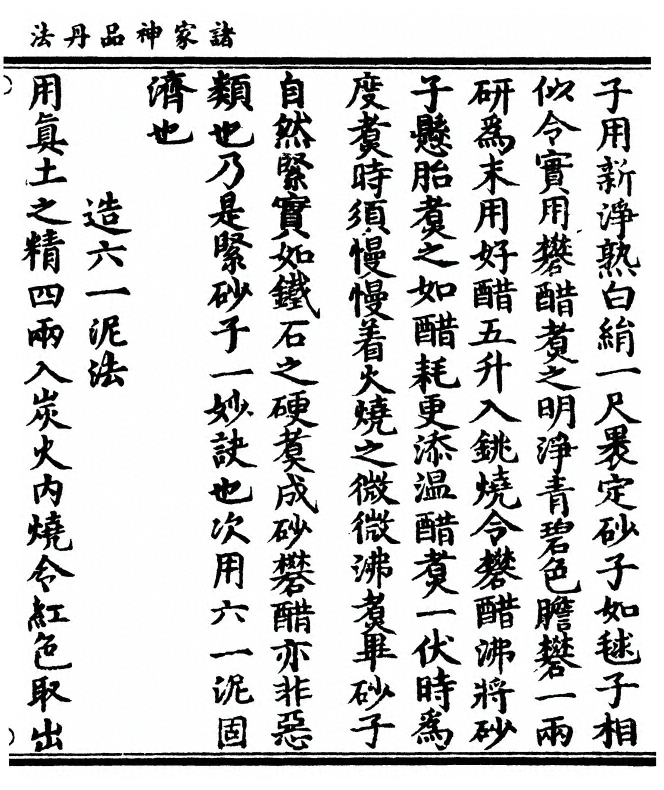 諸家神品丹法
子用新淨熟白絹一尺褁定砂子如毬子相
似令實用礬醋煑之明淨青碧色膽礬一兩
研爲末用好醋五升入銚燒令礬醋沸將砂
子懸胎煑之如醋耗更添温醋煑一伏時爲
度煑時須慢慢着火燒之微微沸煑畢砂子
自然緊實如鐵石之硬煑成砂礬醋亦非惡
類也乃是緊砂子一妙訣也次用六一泥固
濟也
造六一泥法
用眞土之精四兩入炭火内燒令紅色取出